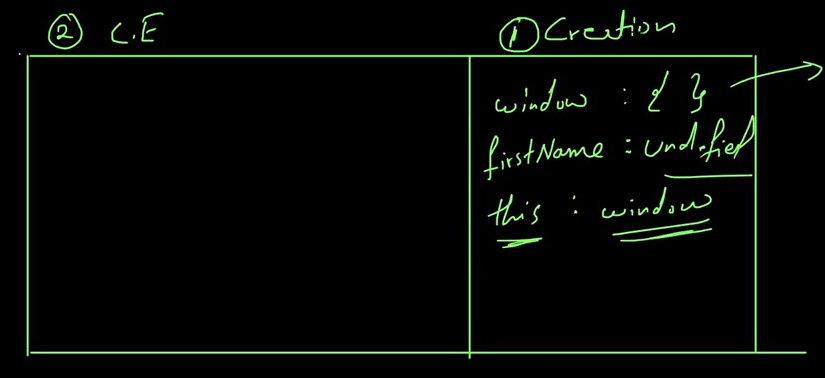 ② C.E
① Creation
window : { }
firstName : undefied
this : window